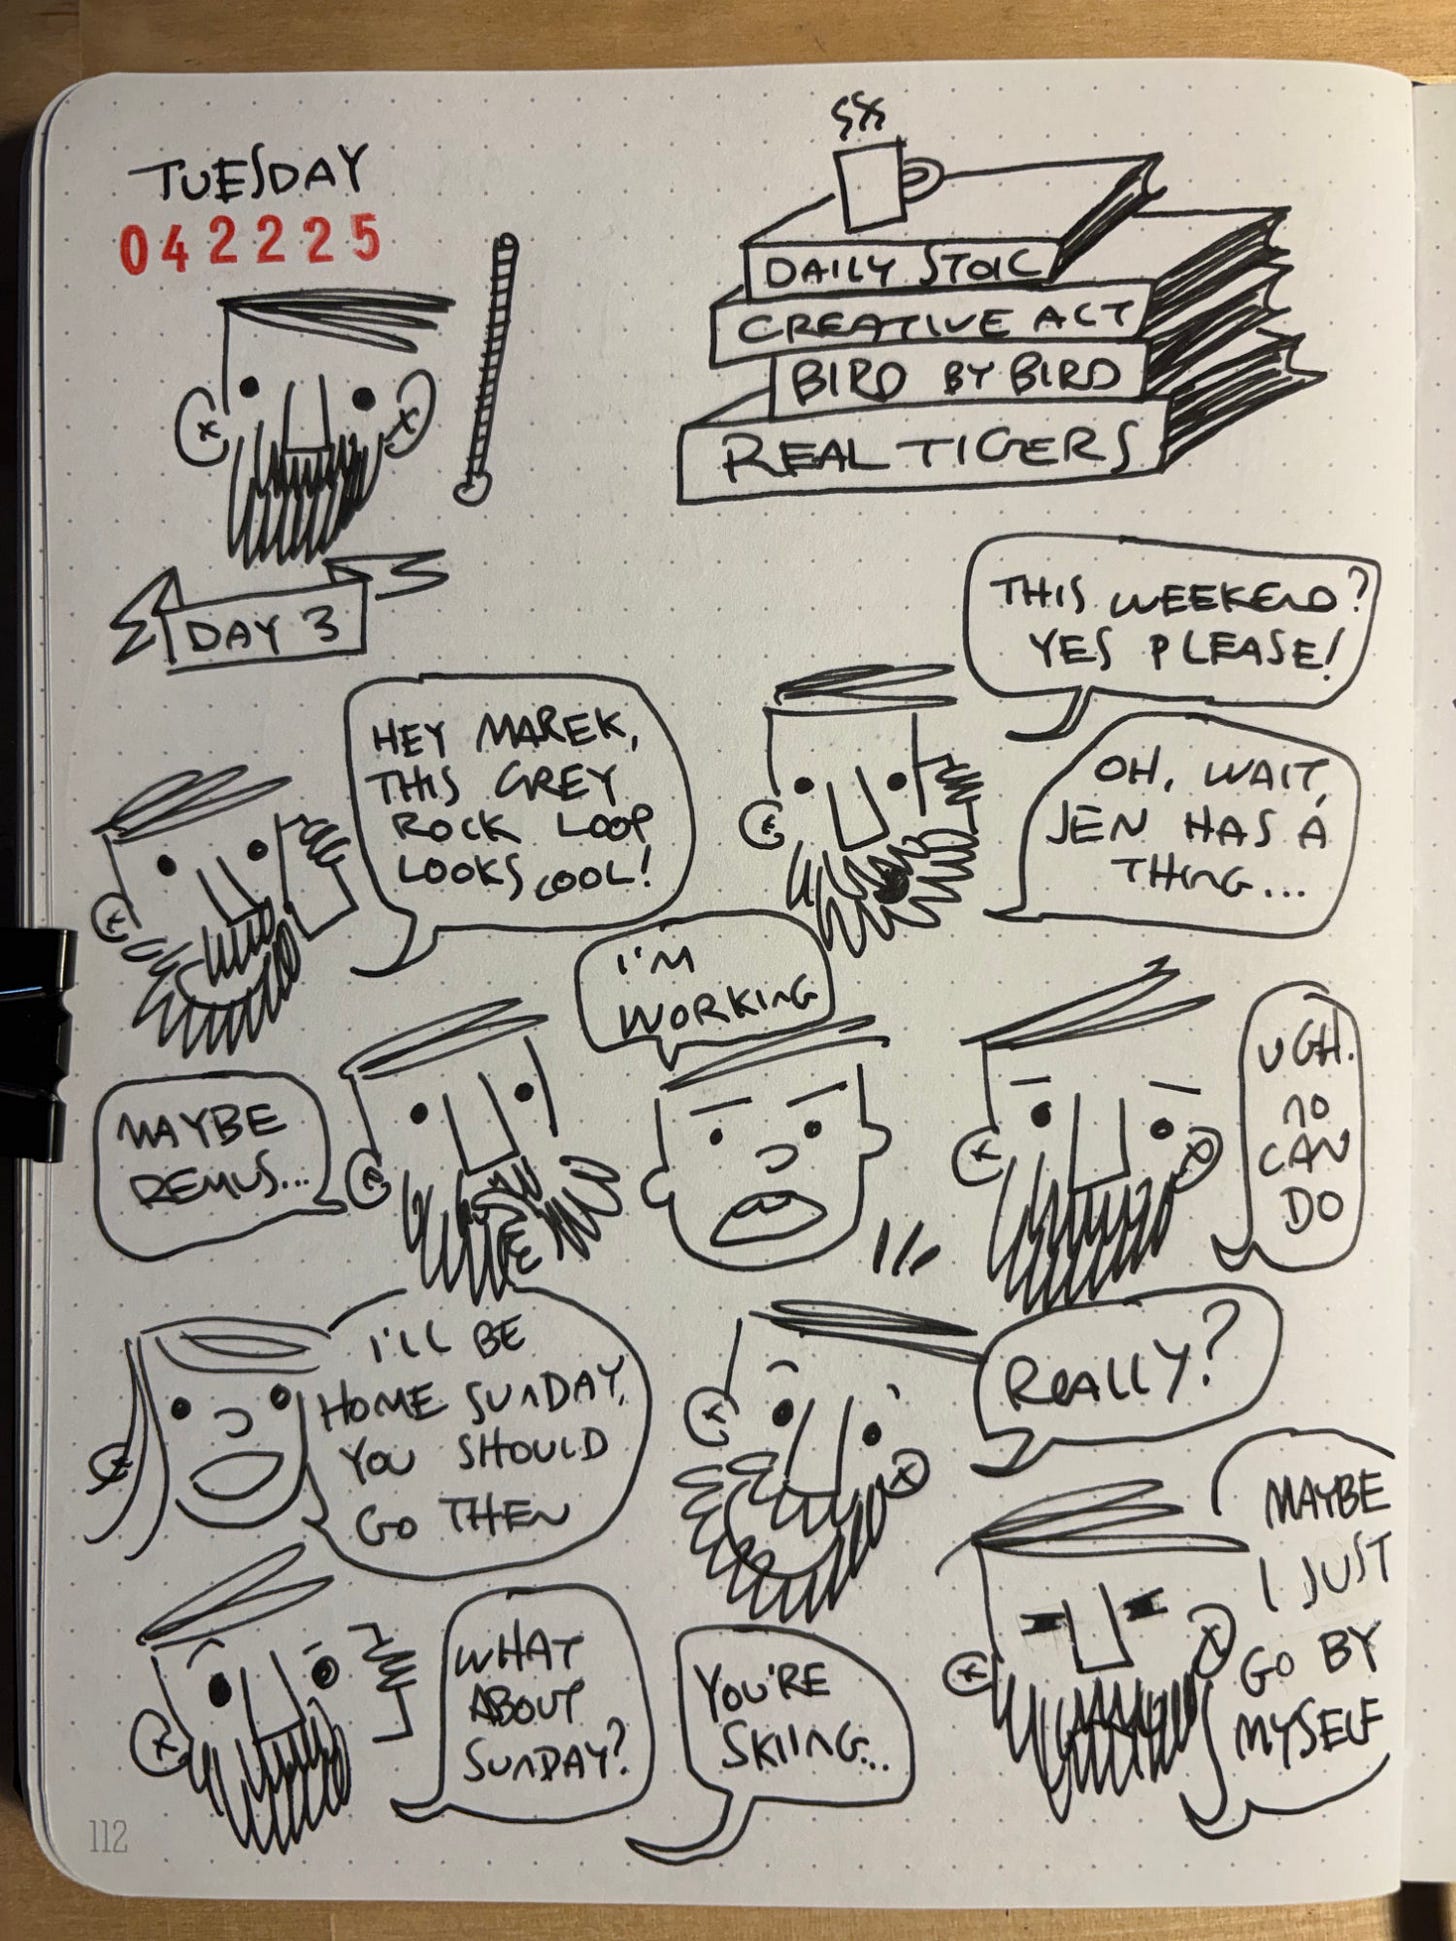 TUESDAY
042225
DAILY STOIC
CREATIVE ACT
BIRD BY BIRD
REAL TIGERS
DAY 3
HEY MAREK,
THIS GREY
ROCK LOOP
LOOKS COOL!
THIS WEEKEND?
YES PLEASE!
OH, WAIT,
JEN HAS A
THING...
MAYBE
REMUS...
I'M
WORKING
UGH.
NO
CAN
DO
I'LL BE
HOME SUNDAY,
YOU SHOULD
GO THEN
REALLY?
WHAT
ABOUT
SUNDAY?
YOU'RE
SKIING...
MAYBE
I JUST
GO BY
MYSELF
112